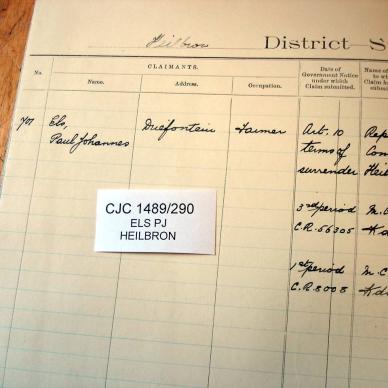 Heilbron District - S
CLAIMANTS.
No. Name. Address. Occupation. Date of Government Notice under which Claim submitted. Name of
to wh
Claim h
subm
707 Els, Paul Johannes Driefontein Farmer Art. 10 terms of surrender Rep
Com
Heil
3rd period C.R. 56305 M.C.
1st period C.R. 8008 M.C
CJC 1489/290
ELS PJ
HEILBRON